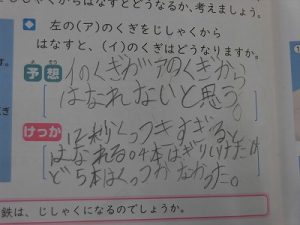 じしゃくからはなすとどうなるか、考えましょう。
左の(ア)のくぎをじしゃくから
はなすと、(イ)のくぎはどうなりますか。
予想
イのくぎがアのくぎから
はなれないと思う。
けっか
12秒くっつきすぎると
はなれる。4本はぎりいけたけ
ど5本はくっつかなかった。
鉄は、じしゃくになるのでしょうか。